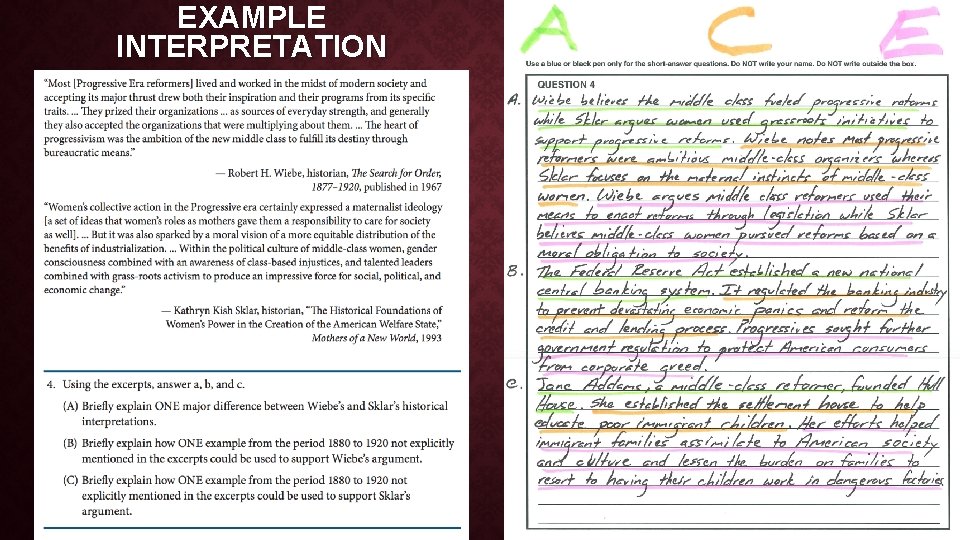 EXAMPLE
INTERPRETATION
“Most [Progressive Era reformers] lived and worked in the midst of modern society and
accepting its major thrust drew both their inspiration and their programs from its specific
traits. ... They prized their organizations ... as sources of everyday strength, and generally
they also accepted the organizations that were multiplying about them. ... The heart of
progressivism was the ambition of the new middle class to fulfill its destiny through
bureaucratic means.”
— Robert H. Wiebe, historian, The Search for Order,
1877–1920, published in 1967
“Women’s collective action in the Progressive era certainly expressed a maternalist ideology
[a set of ideas that women’s roles as mothers gave them a responsibility to care for society
as well]. ... But it was also sparked by a moral vision of a more equitable distribution of the
benefits of industrialization. ... Within the political culture of middle-class women, gender
consciousness combined with an awareness of class-based injustices, and talented leaders
combined with grass-roots activism to produce an impressive force for social, political, and
economic change.”
— Kathryn Kish Sklar, historian, “The Historical Foundations of
Women’s Power in the Creation of the American Welfare State,”
Mothers of a New World, 1993
4. Using the excerpts, answer a, b, and c.
(A) Briefly explain ONE major difference between Wiebe’s and Sklar’s historical
interpretations.
(B) Briefly explain how ONE example from the period 1880 to 1920 not explicitly
mentioned in the excerpts could be used to support Wiebe’s argument.
(C) Briefly explain how ONE example from the period 1880 to 1920 not
explicitly mentioned in the excerpts could be used to support Sklar’s
argument.
A C E
Use a blue or black pen only for the short-answer questions. Do NOT write your name. Do NOT write outside the box.
QUESTION 4
A. Wiebe believes the middle class fueled progressive reforms
while Sklar argues women used grassroots initiatives to
support progressive reforms. Wiebe notes most progressive
reformers were ambitious middle-class organizers whereas
Sklar focuses on the maternal instincts of middle-class
women. Wiebe argues middle class reformers used their
means to enact reforms through legislation while Sklar
believes middle-class women pursued reforms based on a
moral obligation to society.
B. The Federal Reserve Act established a new national
central banking system. It regulated the banking industry
to prevent devastating economic panics and reform the
credit and lending process. Progressives sought further
government regulation to protect American consumers
from corporate greed.
C. Jane Addams, a middle-class reformer, founded Hull
House. She established the settlement house to help
educate poor immigrant children. Her efforts helped
immigrant families assimilate to American society
and culture and lessen the burden on families to
resort to having their children work in dangerous factories